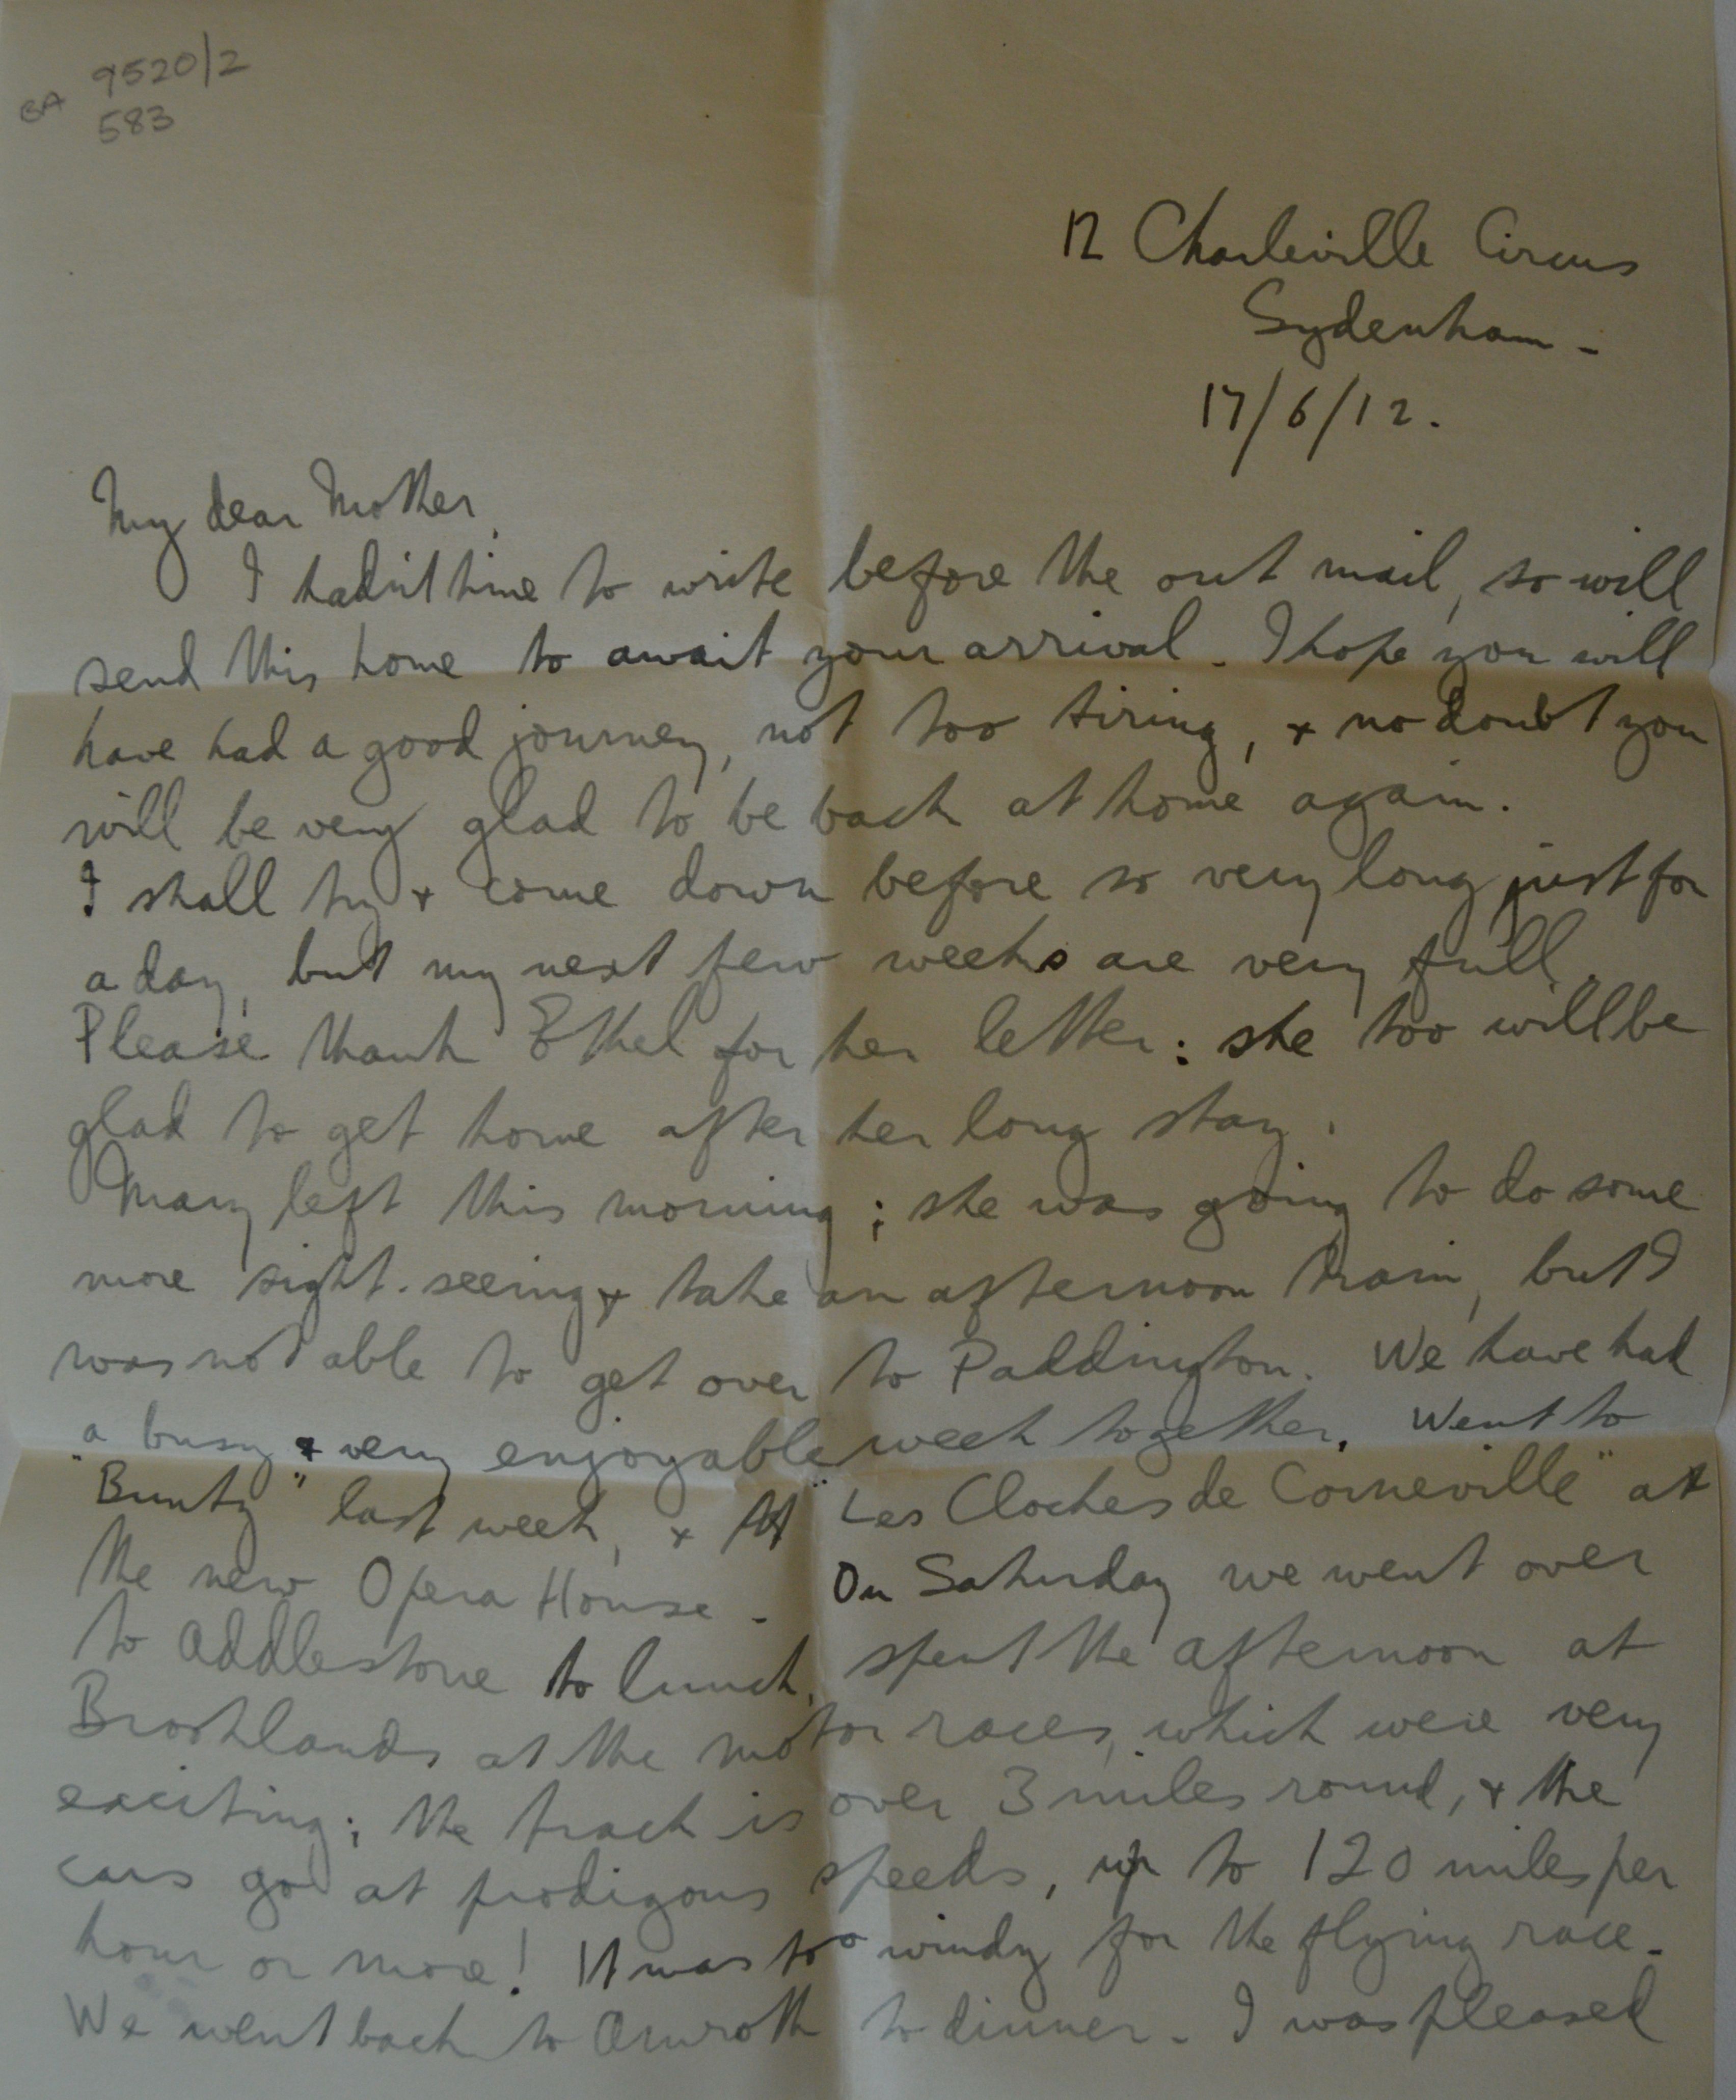 9520/2
BA
583
12 Charleville Circus
Sydenham -
17/6/12.
My dear Mother,
I hadn't time to write before the out mail, so will
send this home to await your arrival. I hope you will
have had a good journey, not too tiring, + no doubt you
will be very glad to be back at home again.
I shall try + come down before so very long just for
a day, but my next few weeks are very full.
Please thank Ethel for her letter: she too will be
glad to get home after her long stay.
Mary left this morning; she was going to do some
more sight-seeing + take an afternoon train, but I
was not able to get over to Paddington. We have had
a busy + very enjoyable week together. Went to
"Bunty" last week, + "Les Cloches de Corneville" at
the new Opera House - On Saturday we went over
to Addlestone to lunch, spent the afternoon at
Brooklands at the motor races, which were very
exciting; the track is over 3 miles round, + the
cars go at prodigous speeds, up to 120 miles per
hour or more! It was too windy for the flying race.
We went back to Amroth to dinner - I was pleased